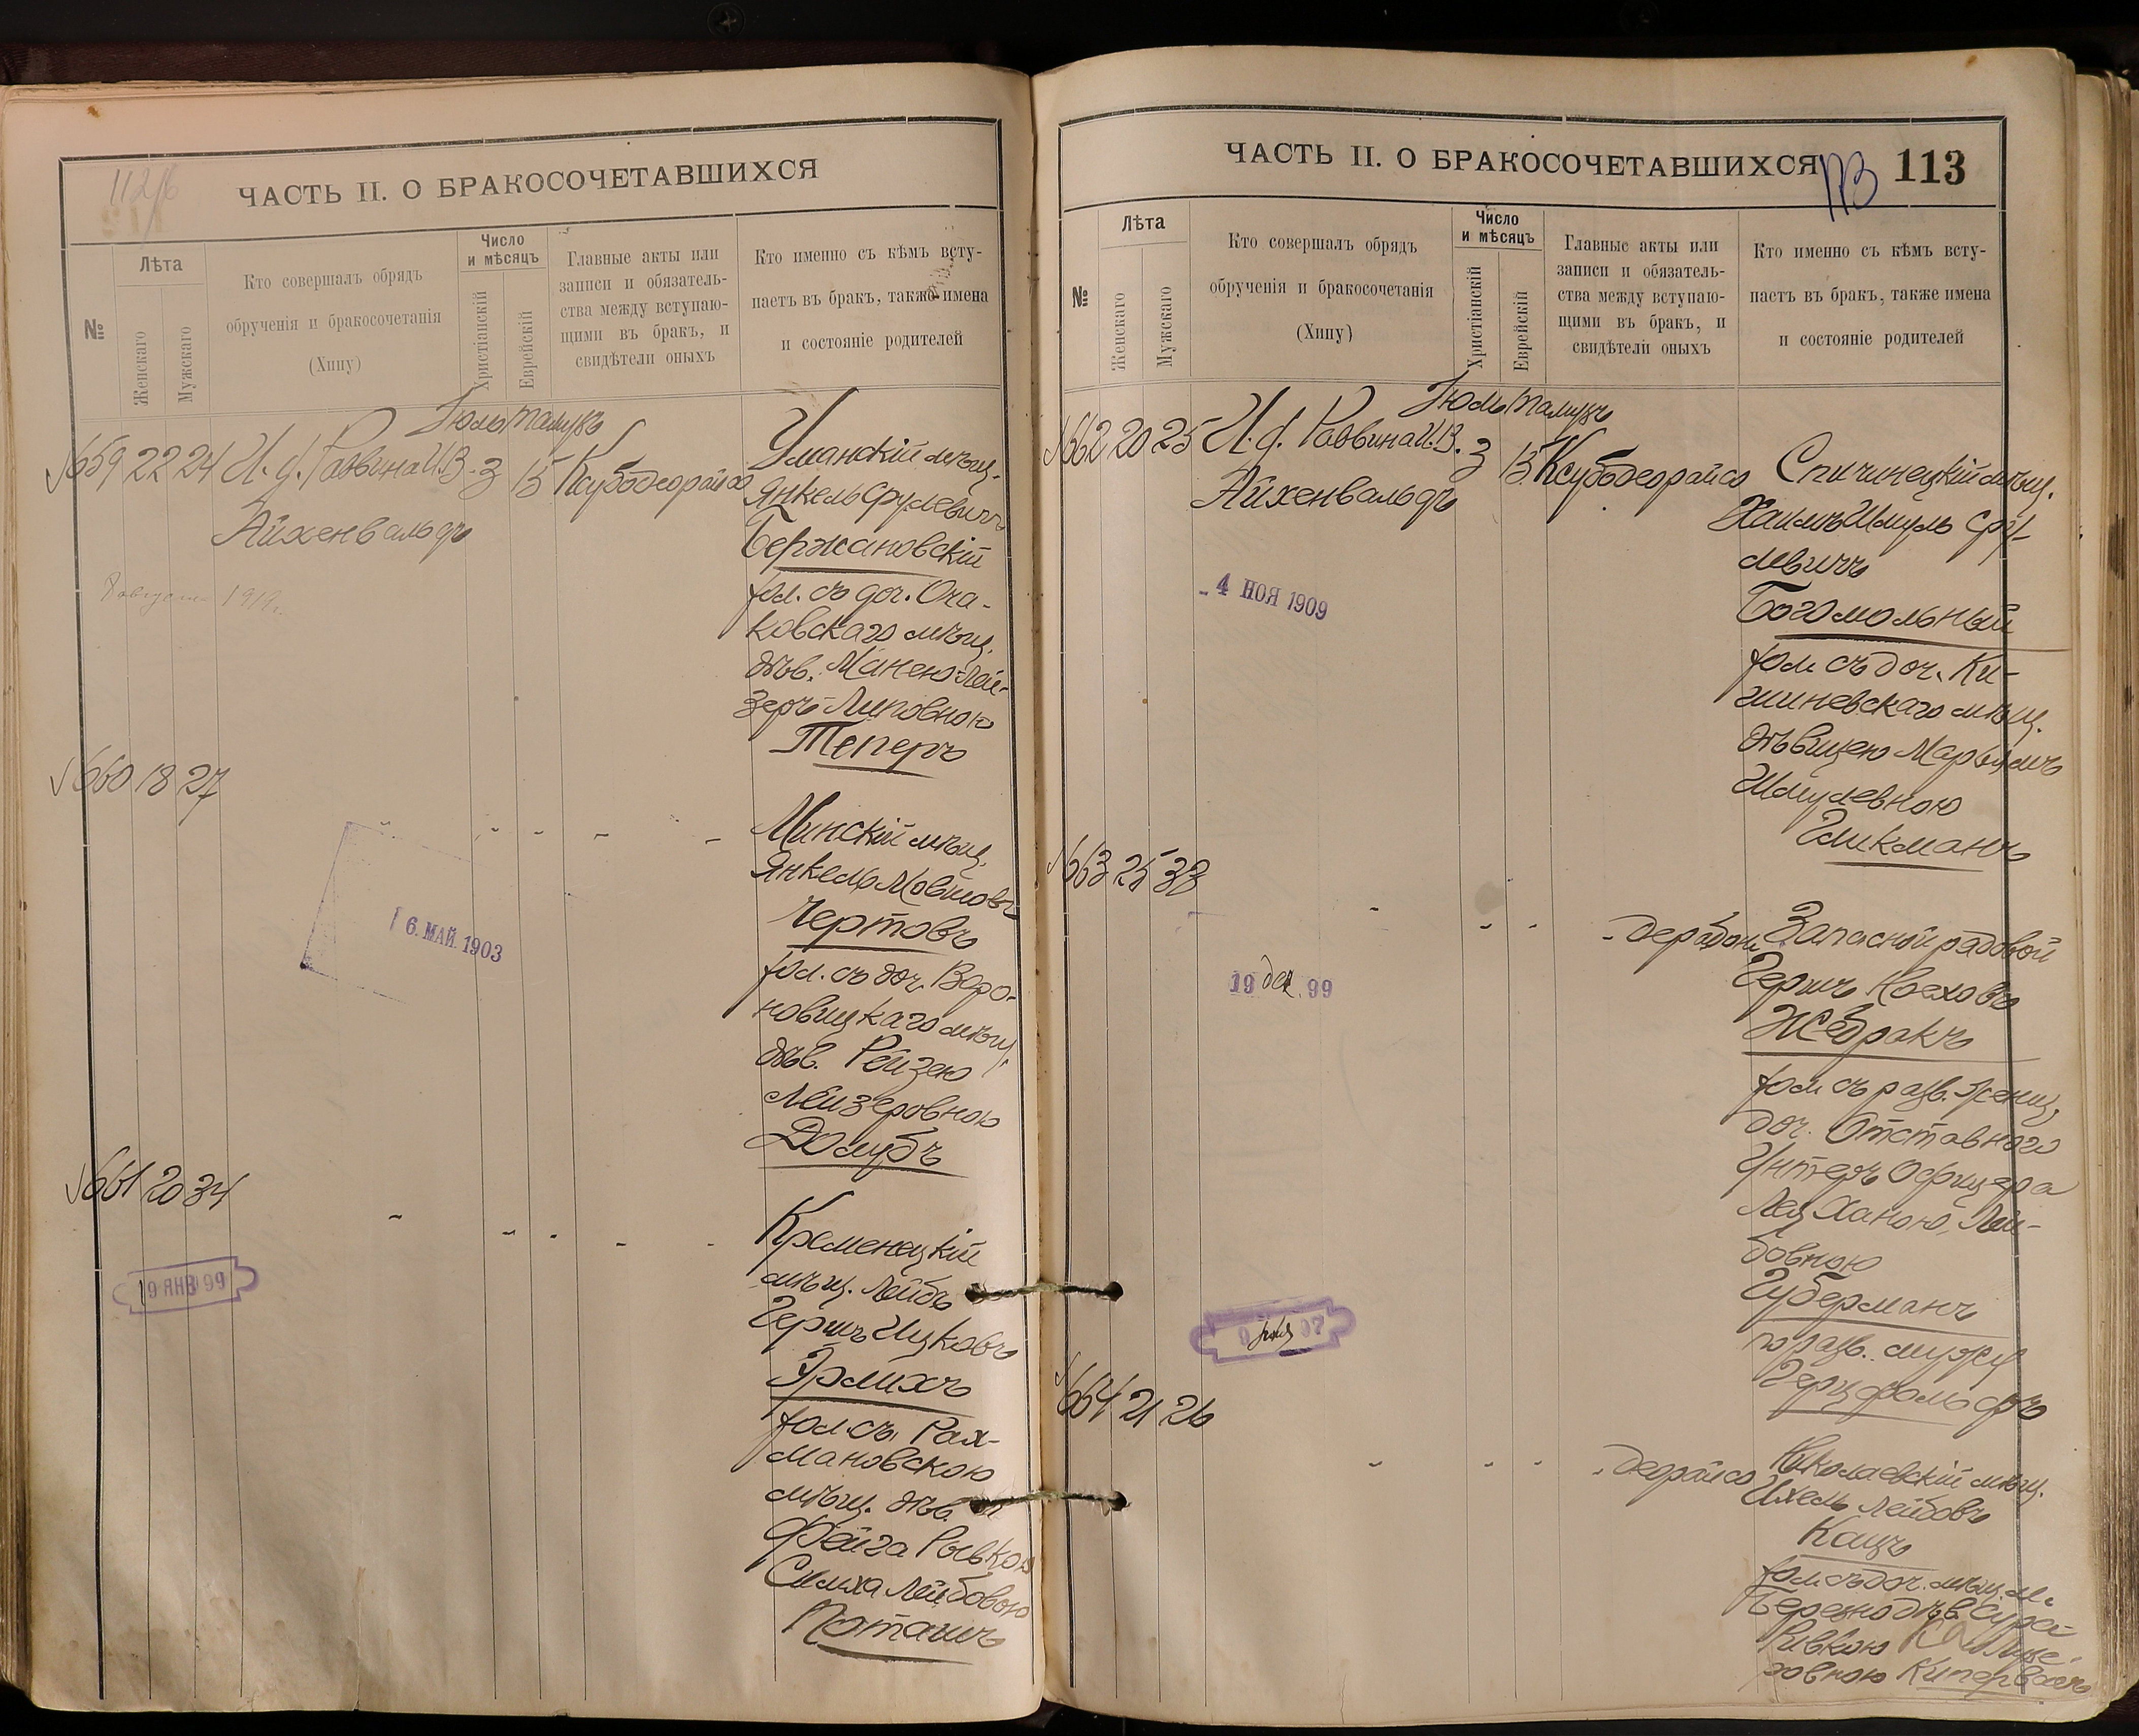 112/б
ЧАСТЬ II. О БРАКОСОЧЕТАВШИХСЯ
№
Лѣта
Женскаго
Мужскаго
Кто совершалъ обрядъ
обрученія и бракосочетанія
(Хипу)
Число
и мѣсяцъ
Христіанскій
Еврейскій
Главные акты или
записи и обязатель-
ства между вступаю-
щими въ бракъ, и
свидѣтели оныхъ
Кто именно съ кѣмъ всту-
паетъ въ бракъ, также имена
и состояніе родителей
Іюль Тамузъ
659 22 24 И. д. Раввина И.В. 3 15 Ксубодеорайсо
Айхенвальдъ
Уманскій мѣщ.
Янкель Срулевичъ
Бержановскій
хол. съ доч. Оча-
ковскаго мѣщ.
дѣв. Манею Лей-
зеръ-Липовною
Теперъ
8 августа 1912г.
660 18 27
Минскій мѣщ.
Янкель Мовшовъ
Чертовъ
хол. съ доч. Воро-
новицкаго мѣщ.
дѣв. Рейзею
Лейзеровною
Долубъ
6. МАЙ. 1903
661 20 34
Кременецкій
мѣщ. Лейбъ
Гершъ Ицковъ
Эрлихъ
хол. съ Рах-
мановскою
мѣщ. дѣв.
Фейга Рывкою
Симха Лейбовою
Поташъ
19 ЯНВ 99
ЧАСТЬ II. О БРАКОСОЧЕТАВШИХСЯ
113
113
№
Лѣта
Женскаго
Мужскаго
Кто совершалъ обрядъ
обрученія и бракосочетанія
(Хипу)
Число
и мѣсяцъ
Христіанскій
Еврейскій
Главные акты или
записи и обязатель-
ства между вступаю-
щими въ бракъ, и
свидѣтели оныхъ
Кто именно съ кѣмъ всту-
паетъ въ бракъ, также имена
и состояніе родителей
Іюль Тамузъ
662 20 25 И. д. Раввина И.В. 3 15 Ксубодеорайсо
Айхенвальдъ
Спичинецкій мѣщ.
Хаимъ Шмуль Сру-
левичъ
Богомольный
хол. съ доч. Ки-
шиневскаго мѣщ.
дѣвицею Марьямъ
Шмулевною
Гликманъ
4 НОЯ 1909
663 25 38
дерабонъ
Запасной рядовой
Гершъ
Жебракъ
хол. съ разв. женщ.
доч. Отставного
Унтеръ Офицера
Ханою Лей-
бовною
Губерманъ
по разв. мужу
Герцфельдъ
19 дек. 99
664 21 26
деорайсо
Николаевскій мѣщ.
Ихель Лейбовъ
Кацъ
хол. съ доч. мѣщ. м.
Березно дѣв. Сура
Ривкою
Кипервасъ